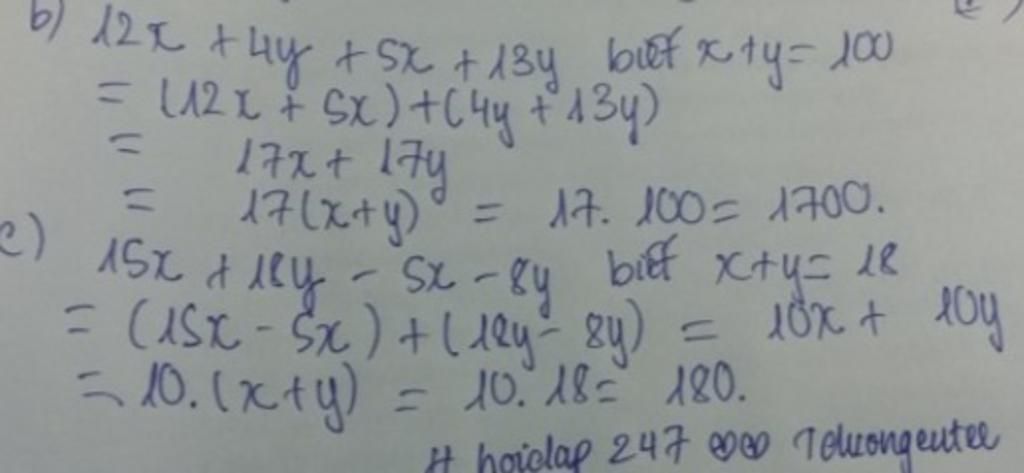 b) 12x + 4y + 5x + 13y biết x+y= 100
= (12x + 5x)+(4y + 13y)
= 17x + 17y
= 17(x+y) = 17. 100= 1700.
c) 15x + 18y - 5x - 8y biết x+y= 18
= (15x - 5x)+(18y- 8y) = 10x + 10y
= 10.(x+y) = 10. 18= 180.
# hoidap 247